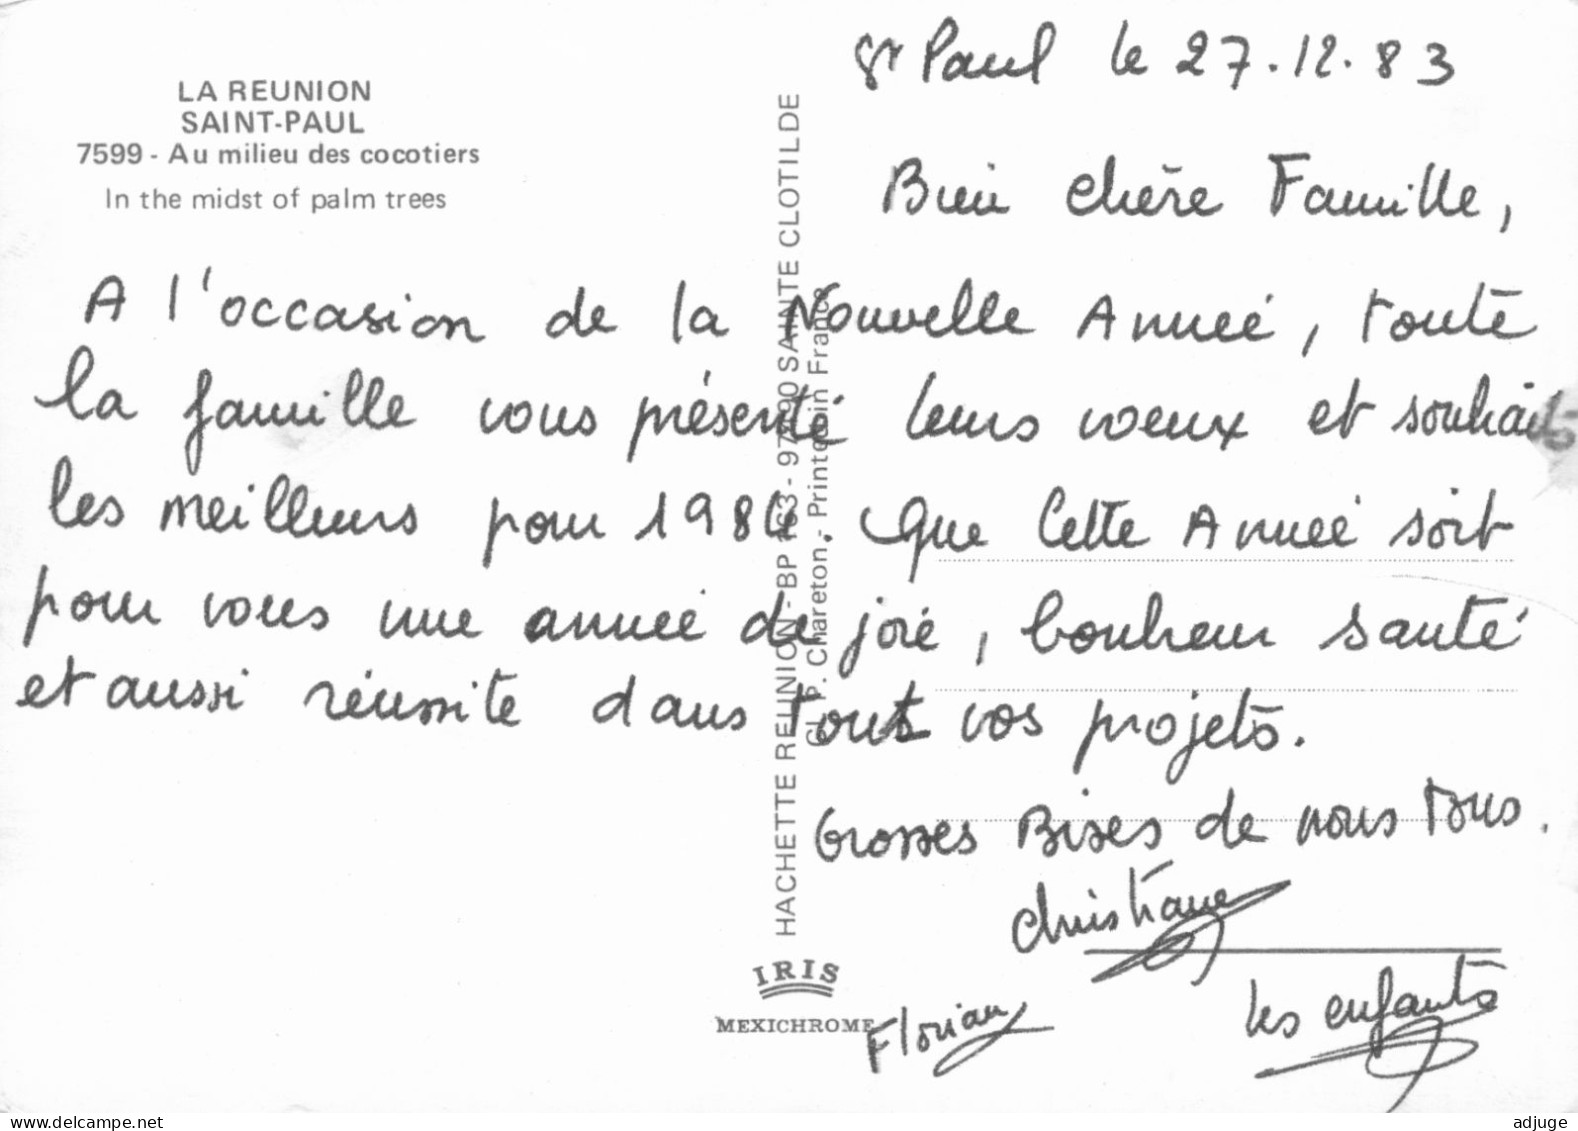 LA REUNION
SAINT-PAUL
7599 - Au milieu des cocotiers
In the midst of palm trees
St Paul le 27.12.83
Bien chère Famille,
A l'occasion de la Nouvelle Année, toute
la famille vous présente leurs voeux et souhaits
les meilleurs pour 1984. Que Cette Année soit
pour vous une année de joie, bonheur santé
et aussi réussite dans tout vos projets.
Grosses Bises de nous tous.
Christiane
Florian
les enfants
HACHETTE REUNION - BP - SAINTE CLOTILDE
Cl. P. Chareton - Printed in France
IRIS
MEXICHROME
www.delcampe.net
adjuge